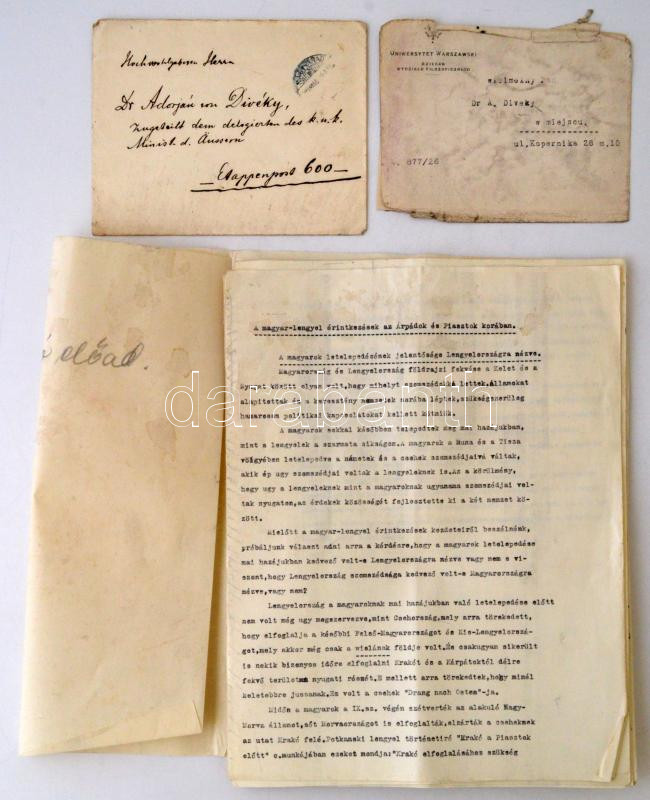 Hochwohlgeboren Herrn
Dr Adorján von Divéky,
zugeteilt dem delegierten des k.u.k.
Minist. d. Äussern
Etappenpost 600
UNIWERSYTET WARSZAWSKI
DZIEKAN
WYDZIAŁU FILOZOFICZNEGO
Dr A. Diveky
w miejscu.
ul. Kopernika 26 m.10
877/26
előad.
A magyar-lengyel érintkezések az Árpádok és Piasztok korában.
A magyarok letelepedésének jelentősége Lengyelországra nézve.
Magyarország és Lengyelország földrajzi fekvése a Kelet és a
Nyugat között olyan volt, hogy mihelyt szomszédokká lettek, államokat
alapítottak és a keresztény nemzetek sorába léptek, szükségszerüleg
hamarosan politikai kapcsolatokat kellett kötniük.
A magyarok sokkal későbben telepedtek meg mai hazájukban,
mint a lengyelek a szarmata sikságon. A magyarok a Duna és a Tisza
völgyében letelepedve a németek és a csehek szomszédjaivá váltak,
akik ép ugy szomszédjai voltak a lengyeleknek is. Az a körülmény,
hogy ugy a lengyeleknek mint a magyaroknak ugyanazok szomszédjai vol-
tak nyugaton, az érdekek közösségét fejlesztette ki a két nemzet kö-
zött.
Mielőtt a magyar-lengyel érintkezések kezdeteiről beszélnénk,
próbáljunk választ adni arra a kérdésre, hogy a magyarok letelepedése
mai hazájukban kedvező volt-e Lengyelországra nézve vagy nem s vi-
szont, hogy Lengyelország szomszédsága kedvező volt-e Magyarországra
nézve, vagy nem?
Lengyelország a magyaroknak mai hazájukban való letelepedése előtt
nem volt még ugy megszervezve, mint Csehország, mely arra törekedett,
hogy elfoglalja a későbbi Felső-Magyarországot és Kis-Lengyelorszá-
got, mely akkor még csak a wislánok földje volt. És csakugyan sikerült
is nekik bizonyos időre elfoglalni Krakót és a Kárpátoktól délre
fekvő terület nyugati részét. E mellett arra törekedtek, hogy minél
keletebbre jussanak. Ez volt a csehek "Drang nach Osten"-ja.
Midőn a magyarok a IX. sz. végén szétverték az alakuló Nagy-
Morva államot, sőt Morvaországot is elfoglalták, elzárták a cseheknek
az utat Krakó felé. Potkanski lengyel történetiró "Krakó a Piasztok
előtt" c. munkájában ezeket mondja: "Krakó elfoglalásához szükség
darabanth